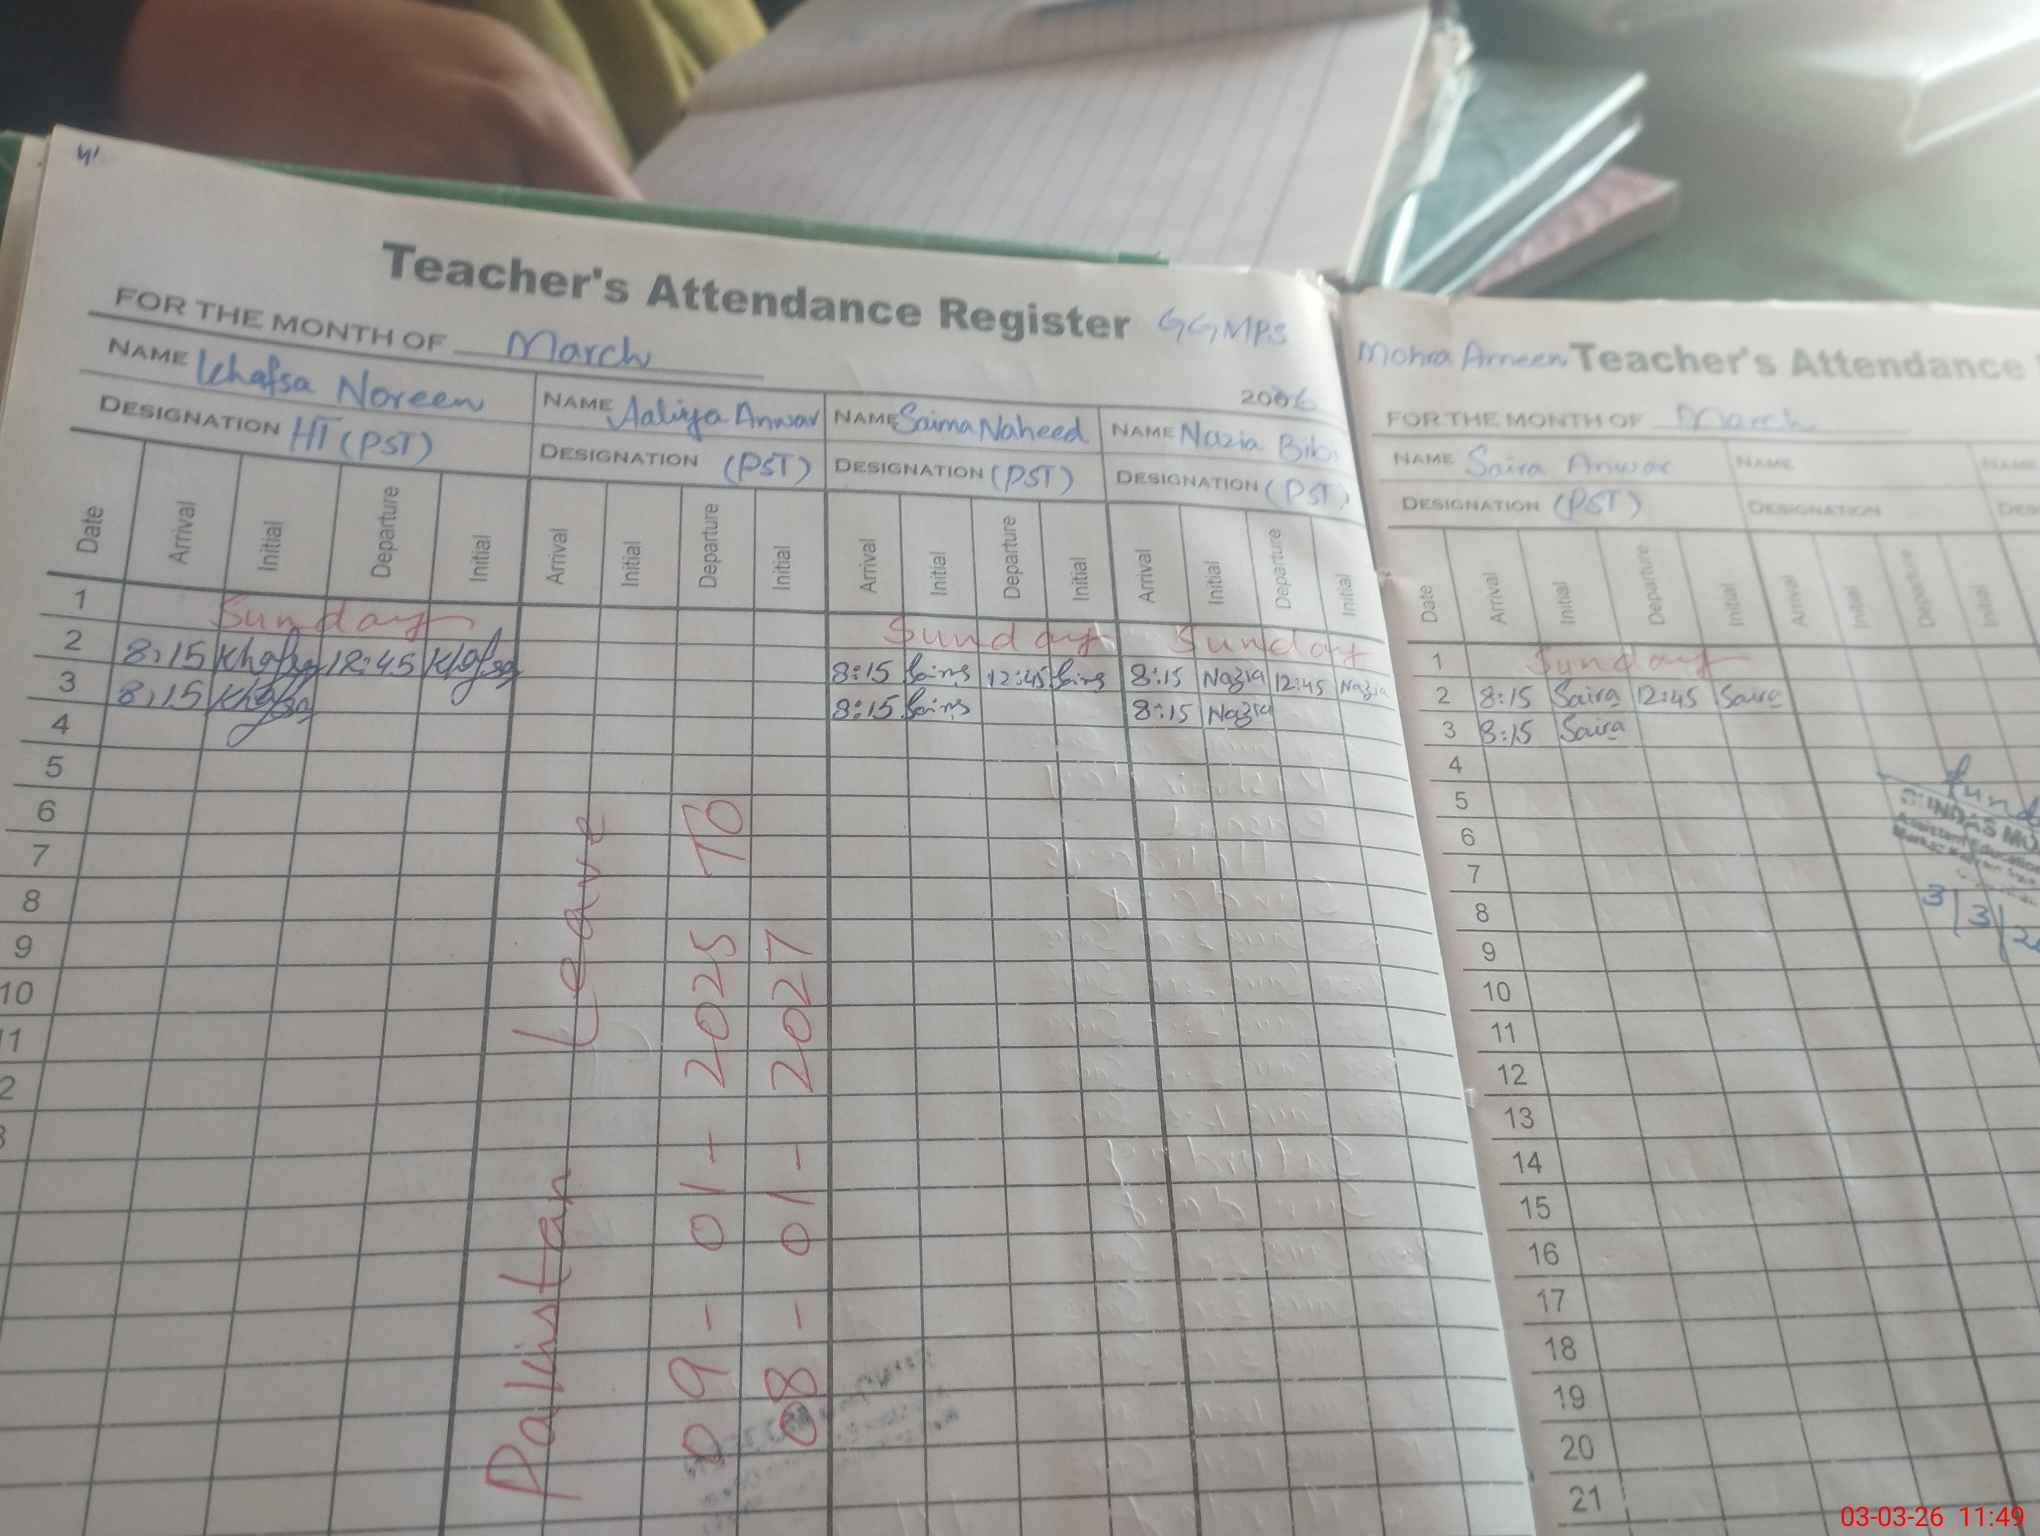 Teacher's Attendance Register GGMPS
FOR THE MONTH OF March
2006
NAME Khafsa Noreen NAME Aaliya Anwar NAME Saima Naheed NAME Nazia Bibi
DESIGNATION HT (PST) DESIGNATION (PST) DESIGNATION (PST) DESIGNATION (PST)
Date Arrival Initial Departure Initial Arrival Initial Departure Initial Arrival Initial Departure Initial Arrival Initial Departure Initial
1 Sunday Sunday Sunday
2 8:15 Khafsa 12:45 Khafsa 8:15 Saima 12:45 Saima 8:15 Nazia 12:45 Nazia
3 8:15 Khafsa 8:15 Saima 8:15 Nazia
4
5
6
7
8
9
10
11
12
Pakistan Leave
09-01-2025 To
08-01-2027
Mohra Arneen Teacher's Attendance
FOR THE MONTH OF March
NAME Saira Anwar NAME NAME
DESIGNATION (PST) DESIGNATION DES
Date Arrival Initial Departure Initial Arrival Initial Departure Initial
1 Sunday
2 8:15 Saira 12:45 Saira
3 8:15 Saira
4
5
6
7
8
9
10
11
12
13
14
15
16
17
18
19
20
21
3/3/2
03-03-26 11:49